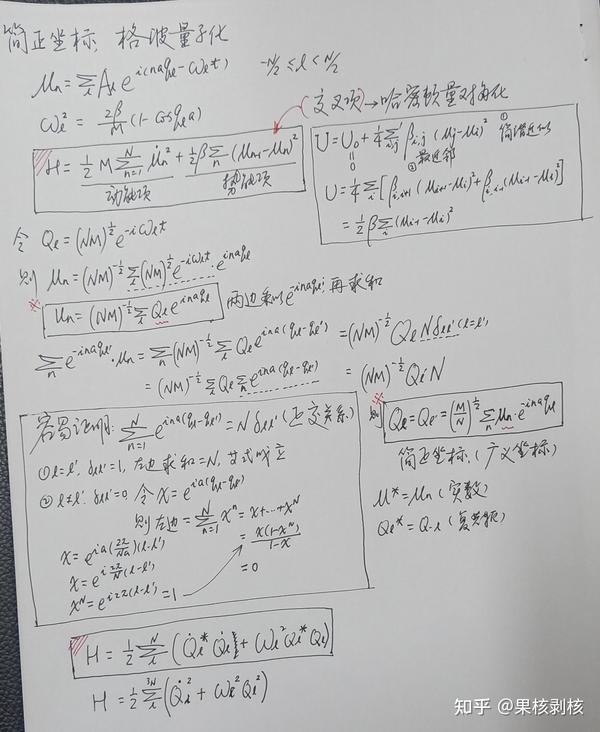 简正坐标, 格波量子化
μₙ = Σ_l A_l e^{i(naq_l - ω_l t)}    -N/2 ≤ l < N/2
ω_l² = 2β/M (1 - cos q_l a)
(交叉项) → 哈密顿量对角化
H = 1/2 M Σ_{n=1}^{N} μ̇ₙ² + 1/2 β Σ_n (μₙ₊₁ - μₙ)²
动能项    势能项
U = U₀ + 1/4 Σ'_{i,j} β_{i,j} (μ_j - μ_i)²    ① 简谐近似
0    ② 最近邻
U = 1/4 Σ_i [β_{i,i+1} (μ_{i+1} - μ_i)² + β_{i,i-1} (μ_{i-1} - μ_i)²]
= 1/2 β Σ_i (μ_{i+1} - μ_i)²
令 Q_l = (NM)^{1/2} e^{-iω_l t}
则 μₙ = (NM)^{-1/2} Σ_l (NM)^{1/2} e^{-iω_l t} · e^{inaq_l}
※ μₙ = (NM)^{-1/2} Σ_l Q_l e^{inaq_l}    两边乘以 e^{-inaq_l'} 再求和
Σ_n e^{-inaq_l'} · μₙ = Σ_n (NM)^{-1/2} Σ_l Q_l e^{ina(q_l - q_l')} = (NM)^{-1/2} Q_l N δ_{ll'} (l = l')
= (NM)^{-1/2} Σ_l Q_l Σ_n e^{ina(q_l - q_l')} = (NM)^{-1/2} Q_l' N
容易证明: Σ_{n=1}^{N} e^{ina(q_l - q_l')} = N δ_{ll'} (正交关系)
① l = l', δ_{ll'} = 1, 左边求和 = N, 等式成立
② l ≠ l', δ_{ll'} = 0 令 x = e^{ia(q_l - q_l')}
则左边 = Σ_{n=1}^{N} xⁿ = x + ··· + x^N
x = e^{ia(2π/Na)(l - l')}    = x(1 - x^N)/(1 - x)
x = e^{i 2π/N (l - l')}    = 0
x^N = e^{i2π(l - l')} = 1
※ 则 Q_l = Q_l' = (M/N)^{1/2} Σ_n μₙ · e^{-inaq_l}
简正坐标, (广义坐标)
μ* = μₙ (实数)
Q_l* = Q_{-l} (复共轭)
H = 1/2 Σ_l^N (Q̇_l* Q̇_l + ω_l² Q_l* Q_l)
H = 1/2 Σ_l^{3N} (Q̇_l² + ω_l² Q_l²)
知乎 @果核剥核